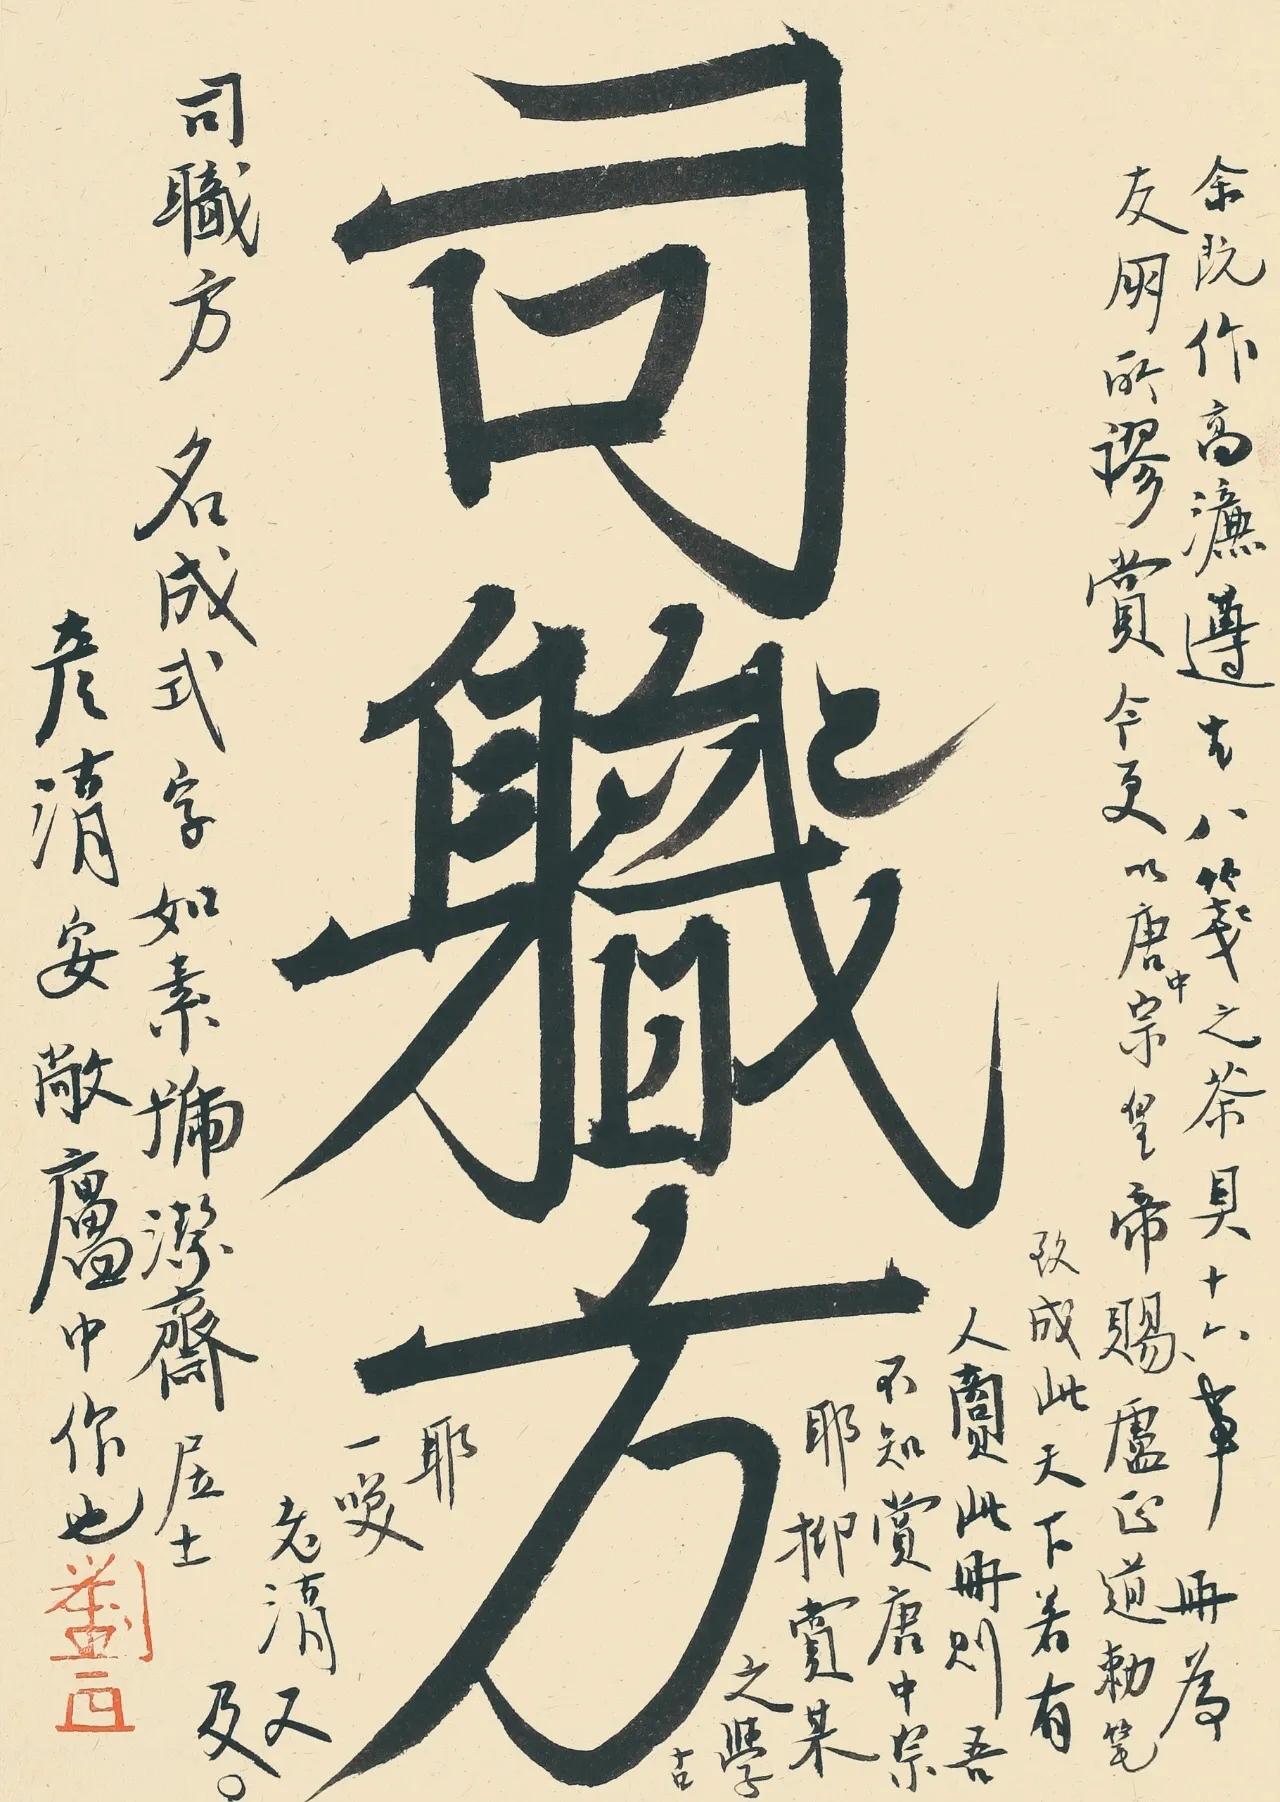 余既作高濂遵生八箋之茶具十六事冊為
友朋所謬賞今更以唐中宗皇帝賜盧正道勅筆
致成此天下若有
人賞此冊則吾
不知賞唐中宗
耶抑賞某
之學
古
耶
一嘆
老清又
及。
司職方
司職方 名成式字如素號潔齋居士
彥清安敞廬中作也
劉